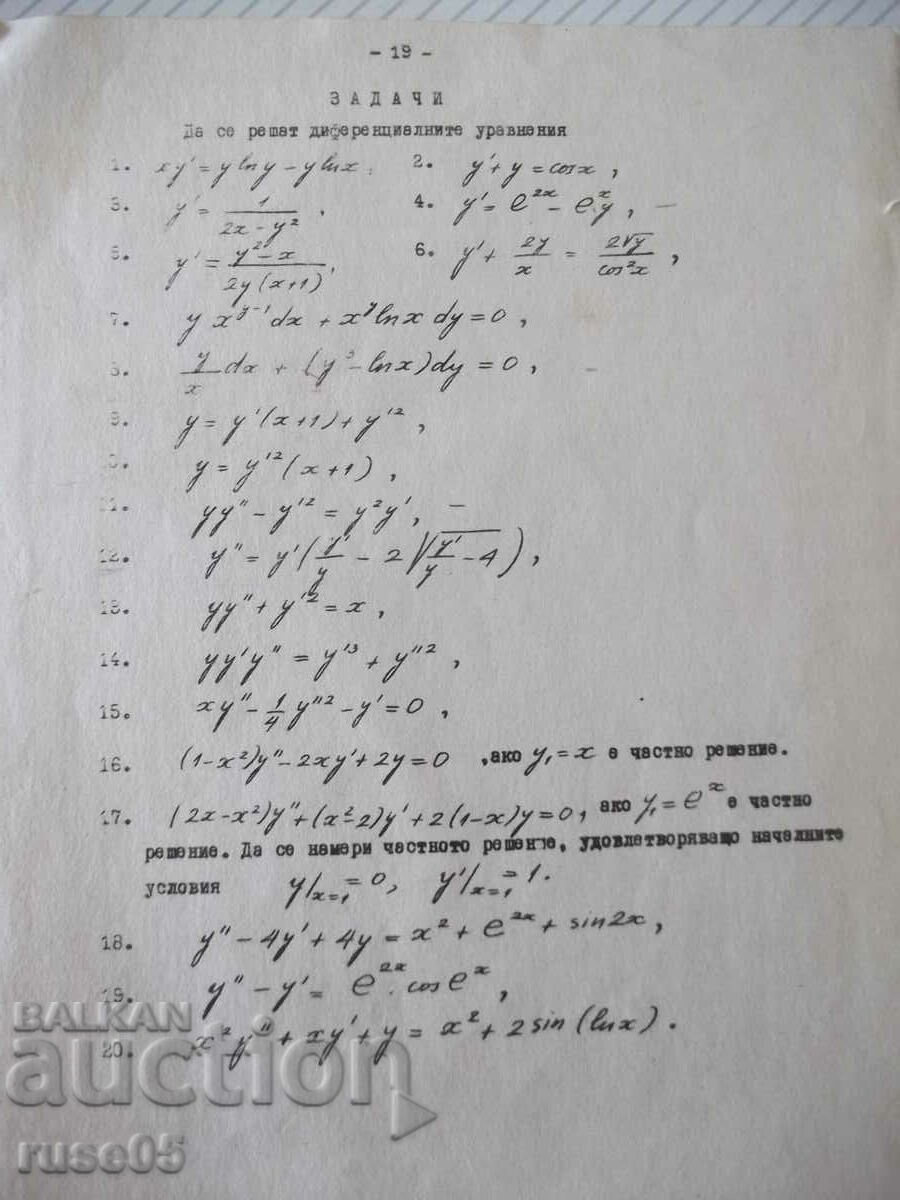 - 19 -
ЗАДАЧИ
Да се решат диференциалните уравнения
1. xy' = y ln y - y ln x, 2. y' + y = cos x,
3. y' = 1/(2x - y²), 4. y' = e^{2x} - e^x y, -
5. y' = (y² - x)/(2y(x+1)), 6. y' + 2y/x = 2√y/cos²x,
7. y x^{y-1} dx + x^y ln x dy = 0,
8. y/x dx + (y³ - ln x) dy = 0,
9. y = y'(x+1) + y'²,
10. y = y'²(x+1),
11. yy'' - y'² = y²y', -
12. y'' = y'(y'/y - 2√(y'/y - 4)),
13. yy'' + y'² = x,
14. yy'y'' = y'³ + y''²,
15. xy'' - 1/4 y''² - y' = 0,
16. (1-x²)y'' - 2xy' + 2y = 0, ако y₁ = x е частно решение.
17. (2x-x²)y'' + (x²-2)y' + 2(1-x)y = 0, ако y₁ = e^x е частно
решение. Да се намери частното решение, удовлетворяващо началните
условия y/ₓ₌₁ = 0, y'/ₓ₌₁ = 1.
18. y'' - 4y' + 4y = x² + e^{2x} + sin 2x,
19. y'' - y' = e^{2x}. cos e^x,
20. x²y'' + xy' + y = x² + 2 sin(ln x).
BALKAN
auction
ruse05